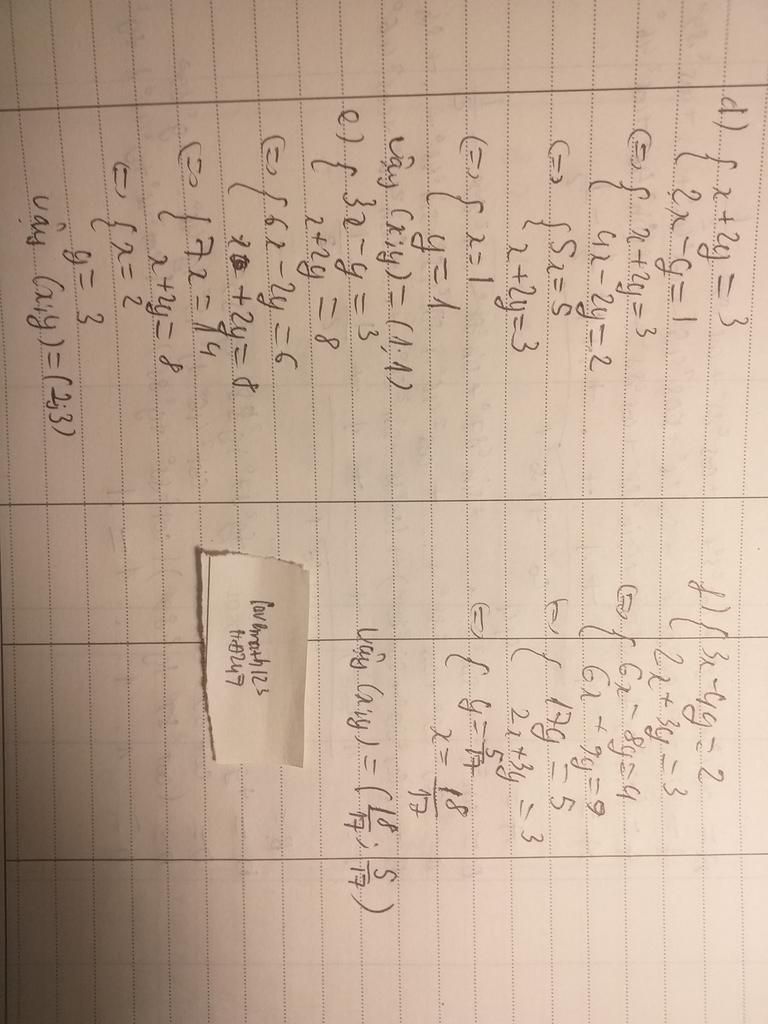 d) { x + 2y = 3
2x - y = 1
<=> { x + 2y = 3
4x - 2y = 2
<=> { 5x = 5
x + 2y = 3
<=> { x = 1
y = 1
Vậy (x;y) = (1;1)
e) { 3x - y = 3
x + 2y = 8
<=> { 6x - 2y = 6
x + 2y = 8
<=> { 7x = 14
x + 2y = 8
<=> { x = 2
y = 3
Vậy (x;y) = (2;3)
f) { 3x - 4y = 2
2x + 3y = 3
<=> { 6x - 8y = 4
6x + 9y = 9
<=> { 17y = 5
2x + 3y = 3
<=> { y = 5/17
x = 18/17
Vậy (x;y) = (18/17; 5/17)
lovemath123